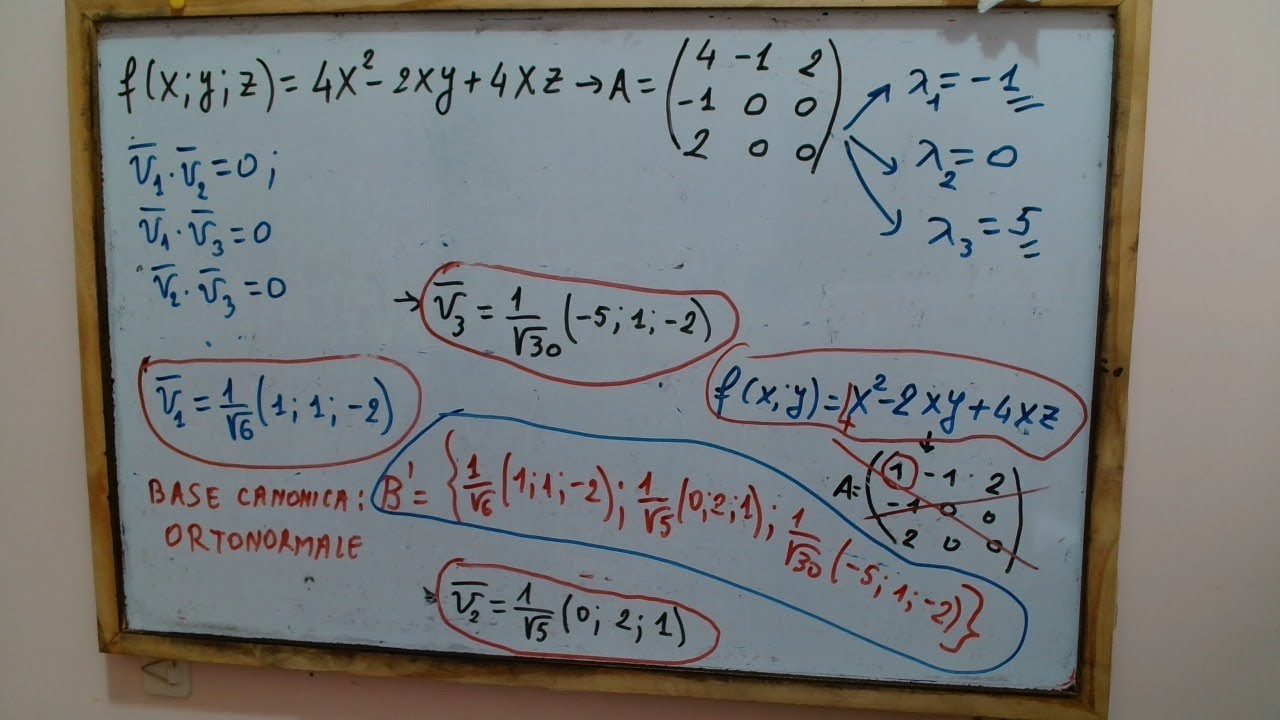 f(x;y;z)=4x²-2xy+4xz→A=(4 -1 2
-1 0 0
2 0 0)
λ₁=-1
λ₂=0
λ₃=5
v̅₁·v̅₂=0;
v̅₁·v̅₃=0
v̅₂·v̅₃=0
→ v̅₃=1/√30(-5;1;-2)
v̅₁=1/√6(1;1;-2)
f(x;y)=4x²-2xy+4xz
A=(1 -1 2
-1 0 0
2 0 0)
BASE CANONICA:
ORTONORMALE
B'={1/√6(1;1;-2);1/√5(0;2;1);1/√30(-5;1;-2)}
v̅₂=1/√5(0;2;1)